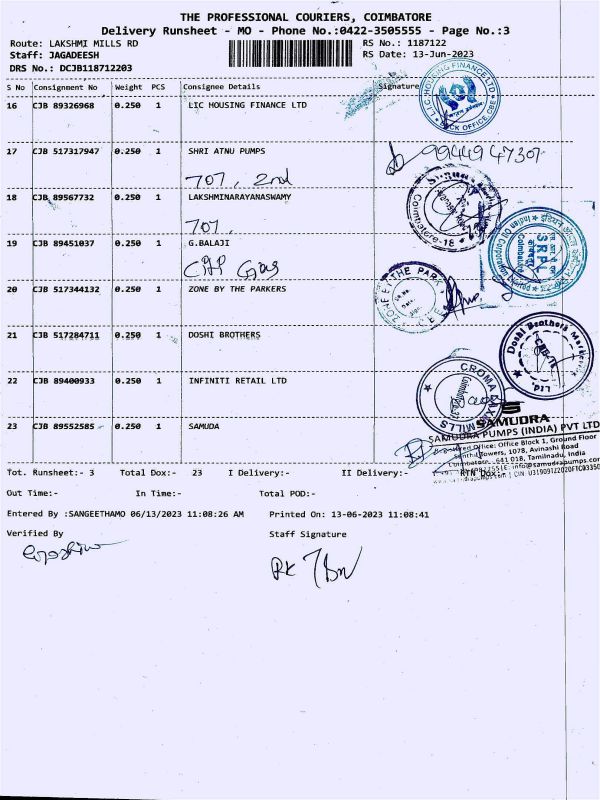 THE PROFESSIONAL COURIERS, COIMBATORE
Delivery Runsheet - MO - Phone No.:0422-3505555 - Page No.:3
Route: LAKSHMI MILLS RD
RS No.: 1187122
Staff: JAGADEESH
RS Date: 13-Jun-2023
DRS No.: DCJB118712203
S No Consignment No Weight PCS Consignee Details Signature
16 CJB 89326968 0.250 1 LIC HOUSING FINANCE LTD
L.I.C HOUSING FINANCE LTD
BACK OFFICE, CBE
17 CJB 517317947 0.250 1 SHRI ATNU PUMPS
9944947307
707, 2nd
18 CJB 89567732 0.250 1 LAKSHMINARAYANASWAMY
707,
Coimbatore-18
19 CJB 89451037 0.250 1 G.BALAJI
Indian Oil Corporation Limited
SRPL
Coimbatore
Gas
20 CJB 517344132 0.250 1 ZONE BY THE PARKERS
ZONE BY THE PARK
21 CJB 517284711 0.250 1 DOSHI BROTHERS
Doshi Brothers
Ltd.
22 CJB 89400933 0.250 1 INFINITI RETAIL LTD
CROMA
MILLS
23 CJB 89552585 0.250 1 SAMUDA
SAMUDRA
SAMUDRA PUMPS (INDIA) PVT LTD
Registered Office: Office Block 1, Ground Floor
Towers, 1078, Avinashi Road
Coimbatore - 641 018, Tamilnadu, India
Tot. Runsheet:- 3 Total Dox:- 23 I Delivery:- II Delivery:- RTN Dox:-
Out Time:- In Time:- Total POD:-
Entered By :SANGEETHAMO 06/13/2023 11:08:26 AM Printed On: 13-06-2023 11:08:41
Verified By Staff Signature